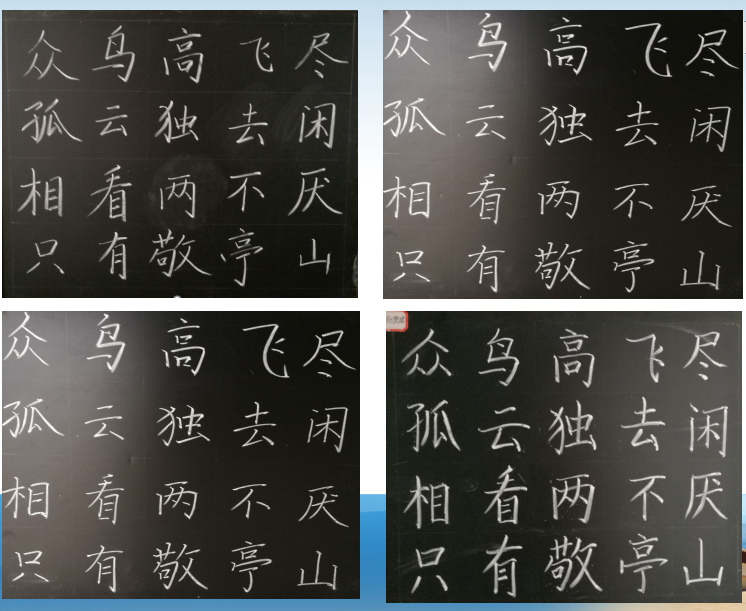 众鸟高飞尽
孤云独去闲
相看两不厌
只有敬亭山
众鸟高飞尽
孤云独去闲
相看两不厌
只有敬亭山
众鸟高飞尽
孤云独去闲
相看两不厌
只有敬亭山
众鸟高飞尽
孤云独去闲
相看两不厌
只有敬亭山